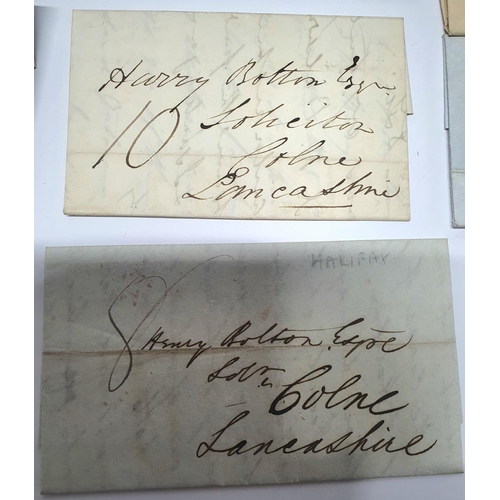 Harry Bolton Esqr
10 Solicitor
Colne
Lancashire
HALIFAX
8 Henry Bolton Esqre
Solr
Colne
Lancashire